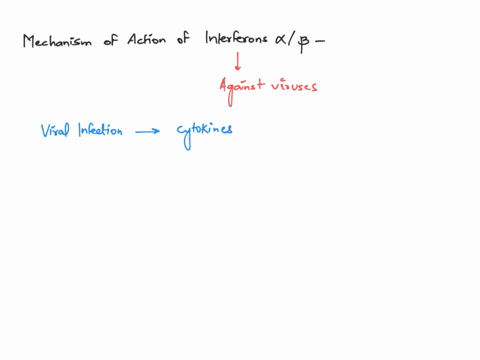 Mechanism of Action of Interferons α/β –
↓
Against viruses
Viral Infection → cytokines